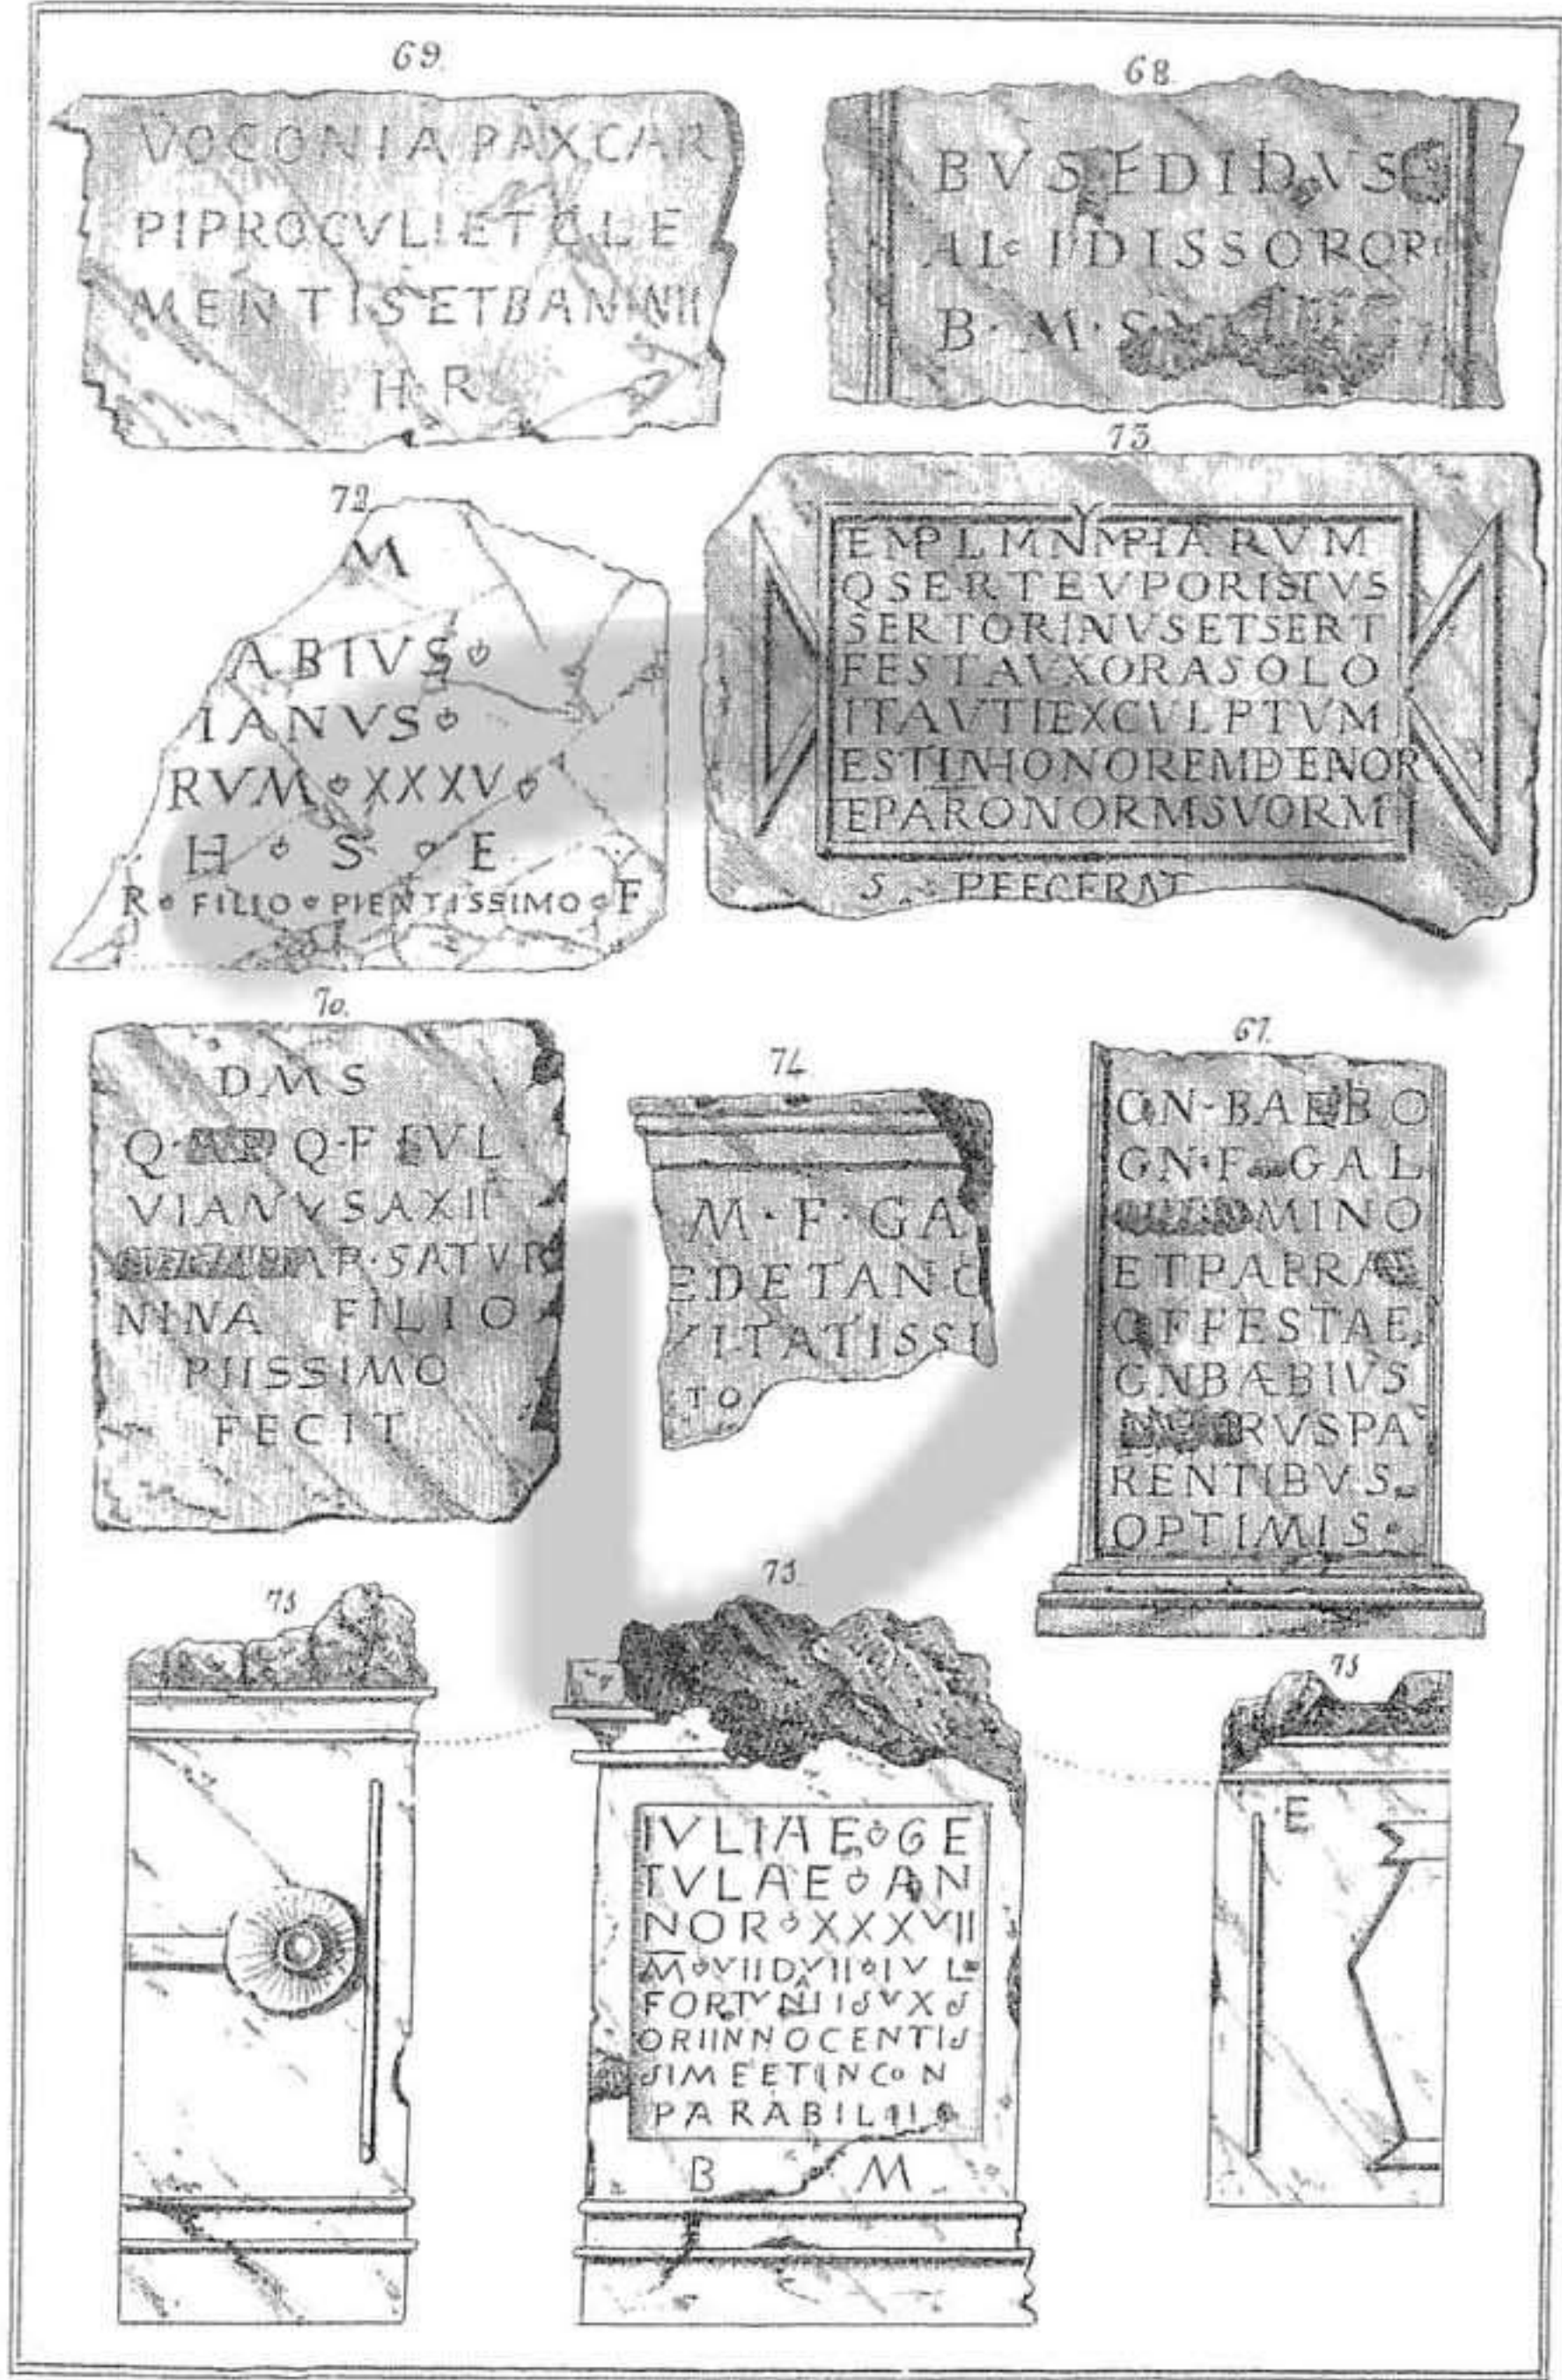 69.
VOCONIA PAX CAR
PI PROCVLI ET CLE
MENTIS ET BANINII
H R
68
BVS EDIDVS
DISSOROR
B · M ·
72
M
ABIVS
IANVS
RVM XXXV
H S E
R FILIO PIENTISSIMO F
73
EMPLMNMPHARVM
QSERTEVPORISTVS
SERTORINVSETSERT
FESTAVXORASOLO
ITAVTIEXCVLPTVM
ESTINHONOREMDENOR
EPARONORMSVORM
S PEECERAT
70.
DMS
Q · Q · F FVL
VIANVSAXII
AP · SATVR
NINA FILIO
PIISSIMO
FECIT
74
M · F · GA
EDETANO
VITATISSI
TO
67.
GN - BAEBO
GN · F GAL
MINO
ETPAPRA
QFFESTAE
GNBÆBIVS
RVSPA
RENTIBVS
OPTIMIS
75
75
IVLIAE GE
TVLAE AN
NOR XXXVII
M VII D VII IVL
FORTVNIIS VX
ORIINNOCENTIS
SIMEETINCON
PARABILII
B M
75
E